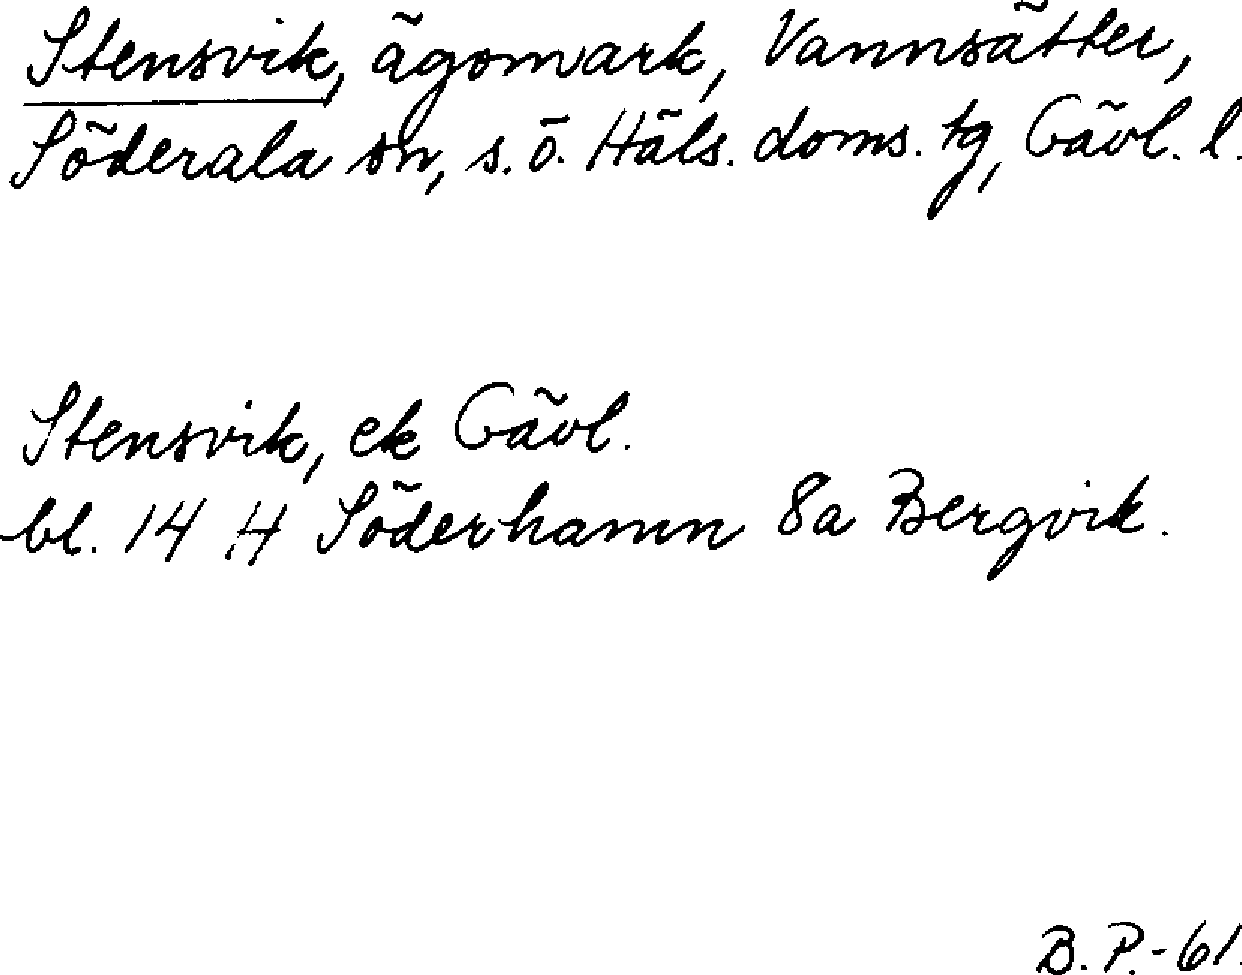 Stensvik, ägomark, Vannsätter,
Söderala sn, s. ö. Häls. doms. tg, Gävl. l.
Stensvik, ek Gävl.
bl. 14 H Söderhamn 8a Bergvik.
B. P. - 61.